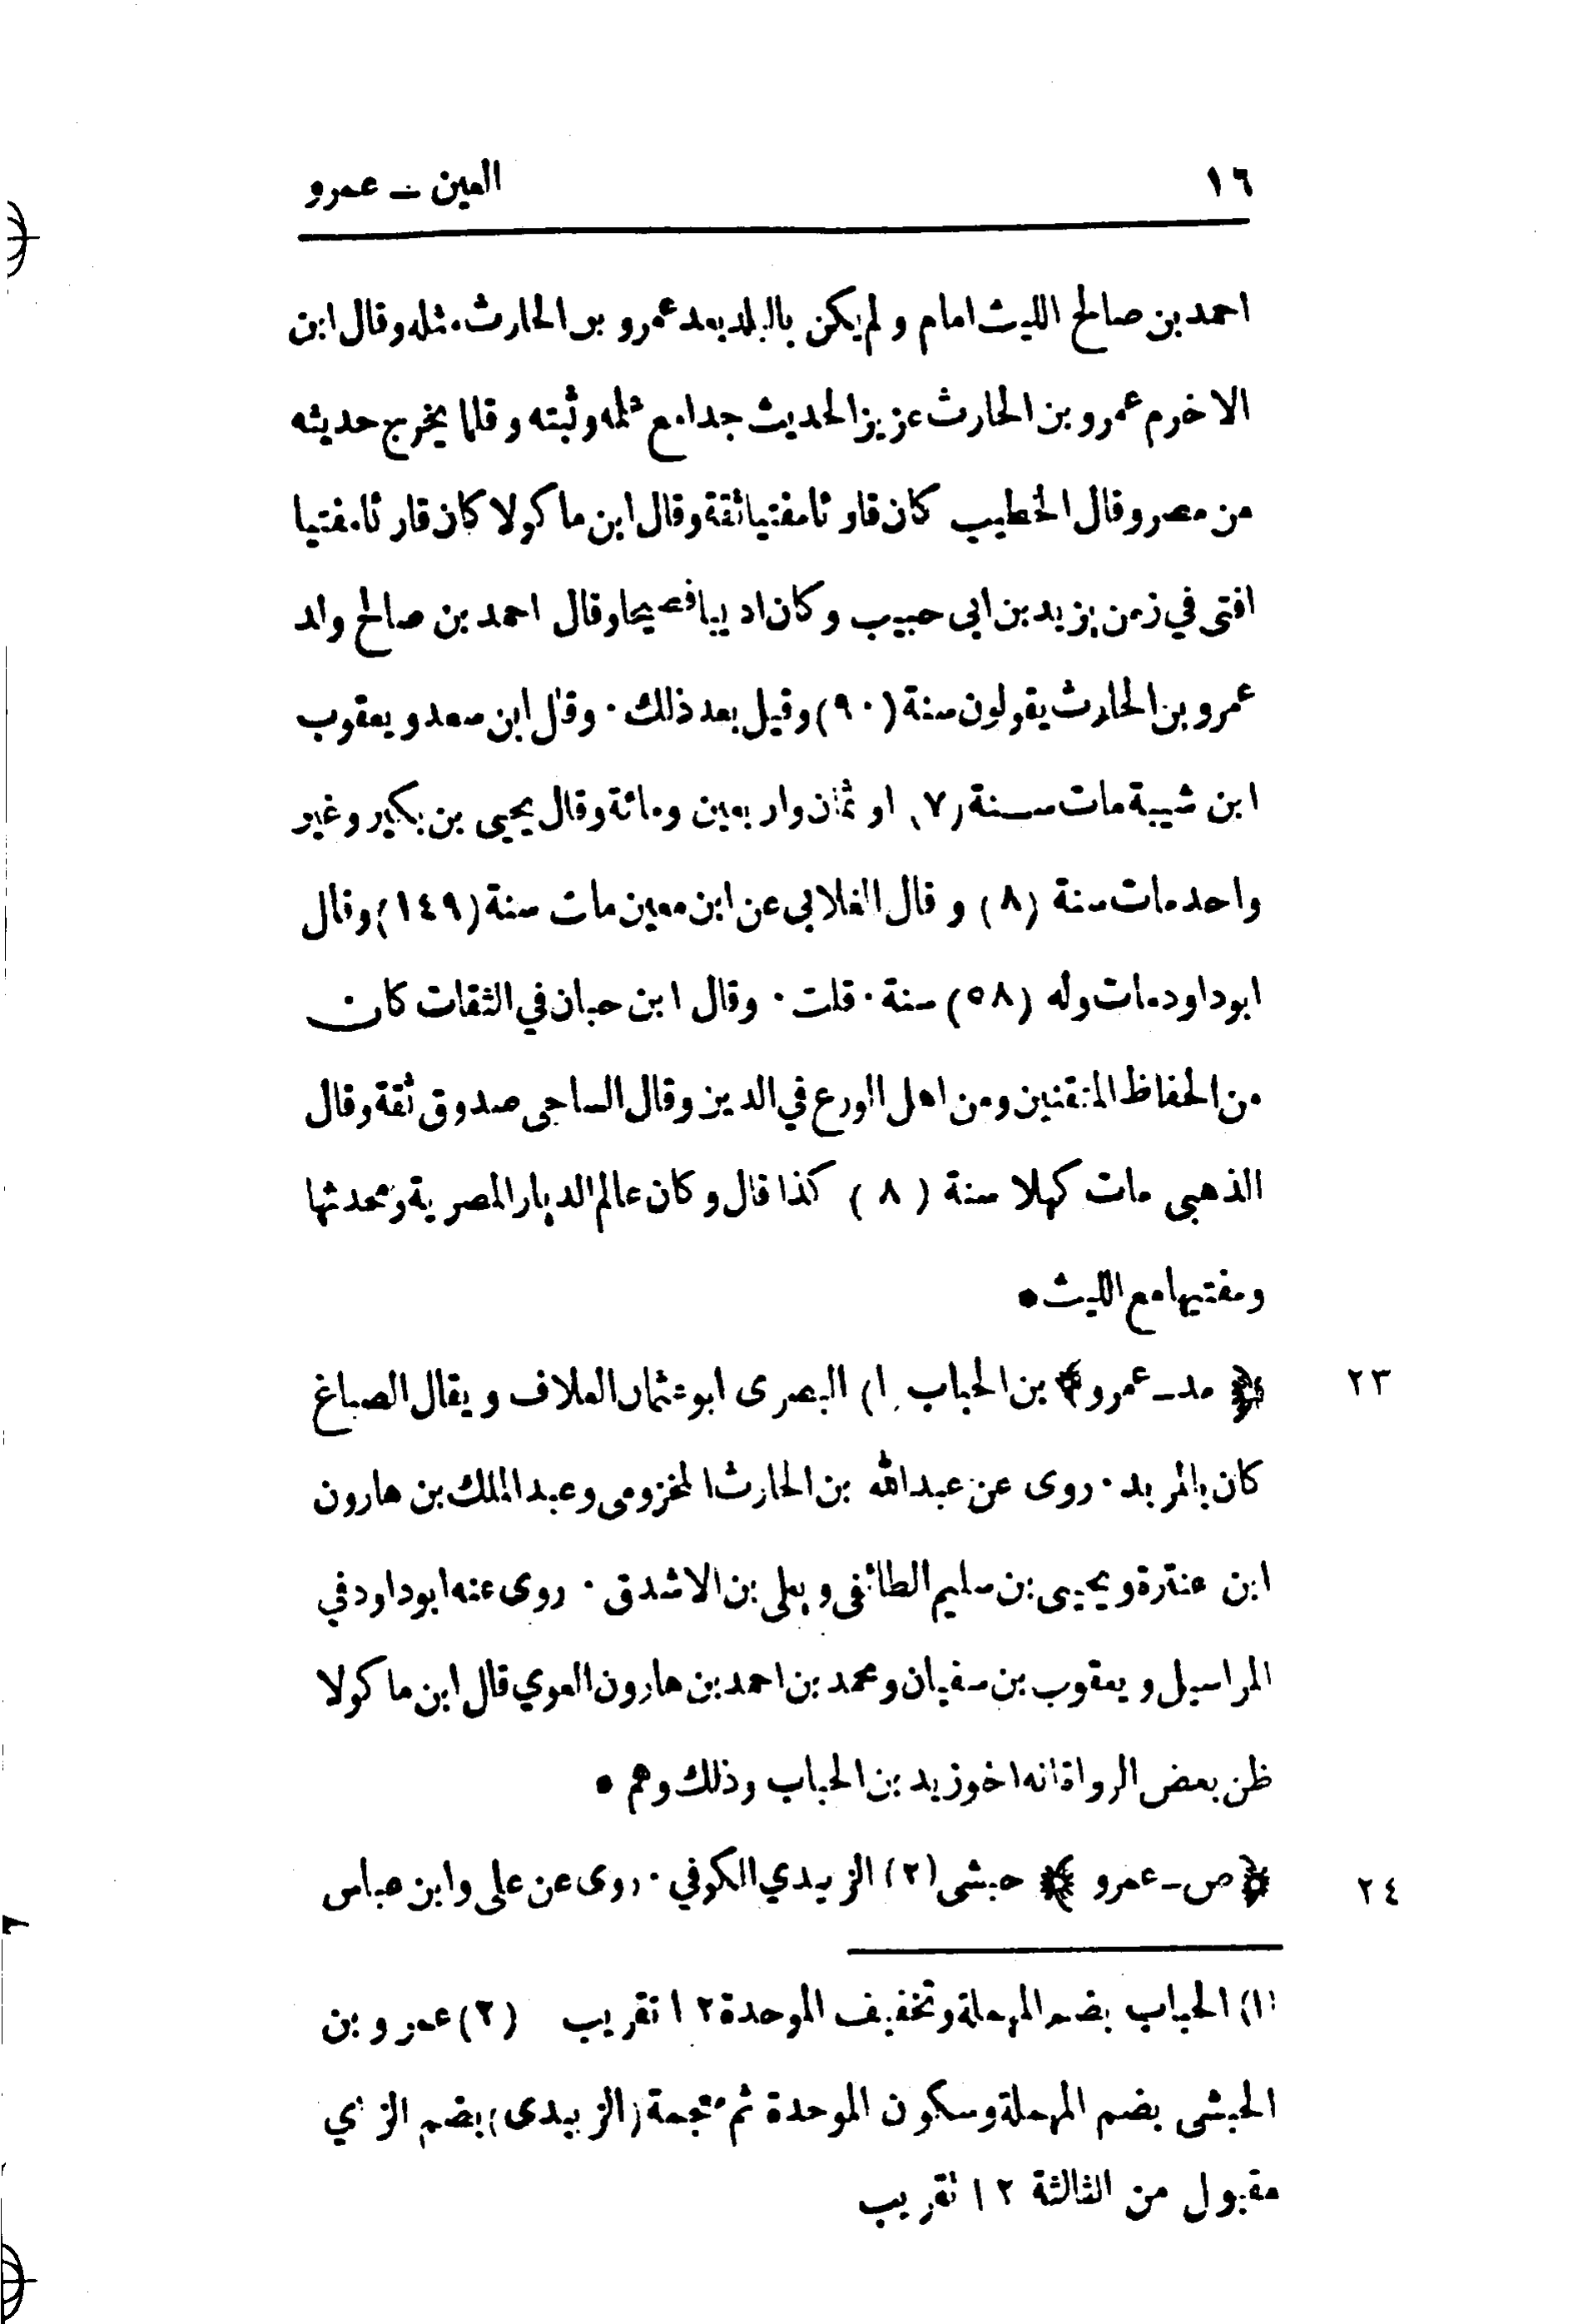 ١٦ العين - عمرو
احمد بن صالح الليث امام ولم يكن بالبلد بعد عمرو بن الحارث مثله وقال ابن
الاخرم عمرو بن الحارث عزيز الحديث جدا مع علمه وثبته وقلما يخرج حديثه
من مصر وقال الخطيب كان قارئا مفتيا ثقة وقال ابن ماكولا كان قارئا مفتيا
افتى في زمن يزيد بن ابي حبيب وكان اديبا فصيحا وقال احمد بن صالح ولد
عمرو بن الحارث يقولون سنة (٩٠) وقيل بعد ذلك · وقال ابن سعد ويعقوب
ابن شيبة مات سنة (٧) او ثمان واربعين ومائة وقال يحيى بن بكير وغير
واحد مات سنة (٨) وقال الغلابي عن ابن معين مات سنة (١٤٩) وقال
ابوداود مات وله (٥٨) سنة · قلت · وقال ابن حبان في الثقات كان
من الحفاظ المتقنين ومن اهل الورع في الدين وقال الساجي صدوق ثقة وقال
الذهبي مات كهلا سنة (٨) كذا قال وكان عالم الديار المصرية ومحدثها
ومفتيها مع الليث •
٢٣ ﴿ مد - عمرو ﴾ بن الحباب (١) البصرى ابو عثمان العلاف ويقال الصباغ
كان بالمربد · روى عن عبدالله بن الحارث المخزومي وعبد الملك بن هارون
ابن عنترة ويحيى بن سليم الطائفي ويعلى بن الاشدق · روى عنه ابو داود في
المراسيل ويعقوب بن سفيان ومحمد بن احمد بن هارون العوي قال ابن ماكولا
ظن بعض الرواة انه اخو زيد بن الحباب وذلك وهم •
٢٤ ﴿ ص - عمرو ﴾ حبشى (٢) الزبيدي الكوفي · روى عن على وابن عباس
(١) الحباب بضم المهملة وتخفيف الموحدة ١٢ تقريب (٢) عمرو بن
الحبشى بضم المهملة وسكون الموحدة ثم معجمة (الزبيدى) بضم الزاي
مقبول من الثالثة ١٢ تقريب